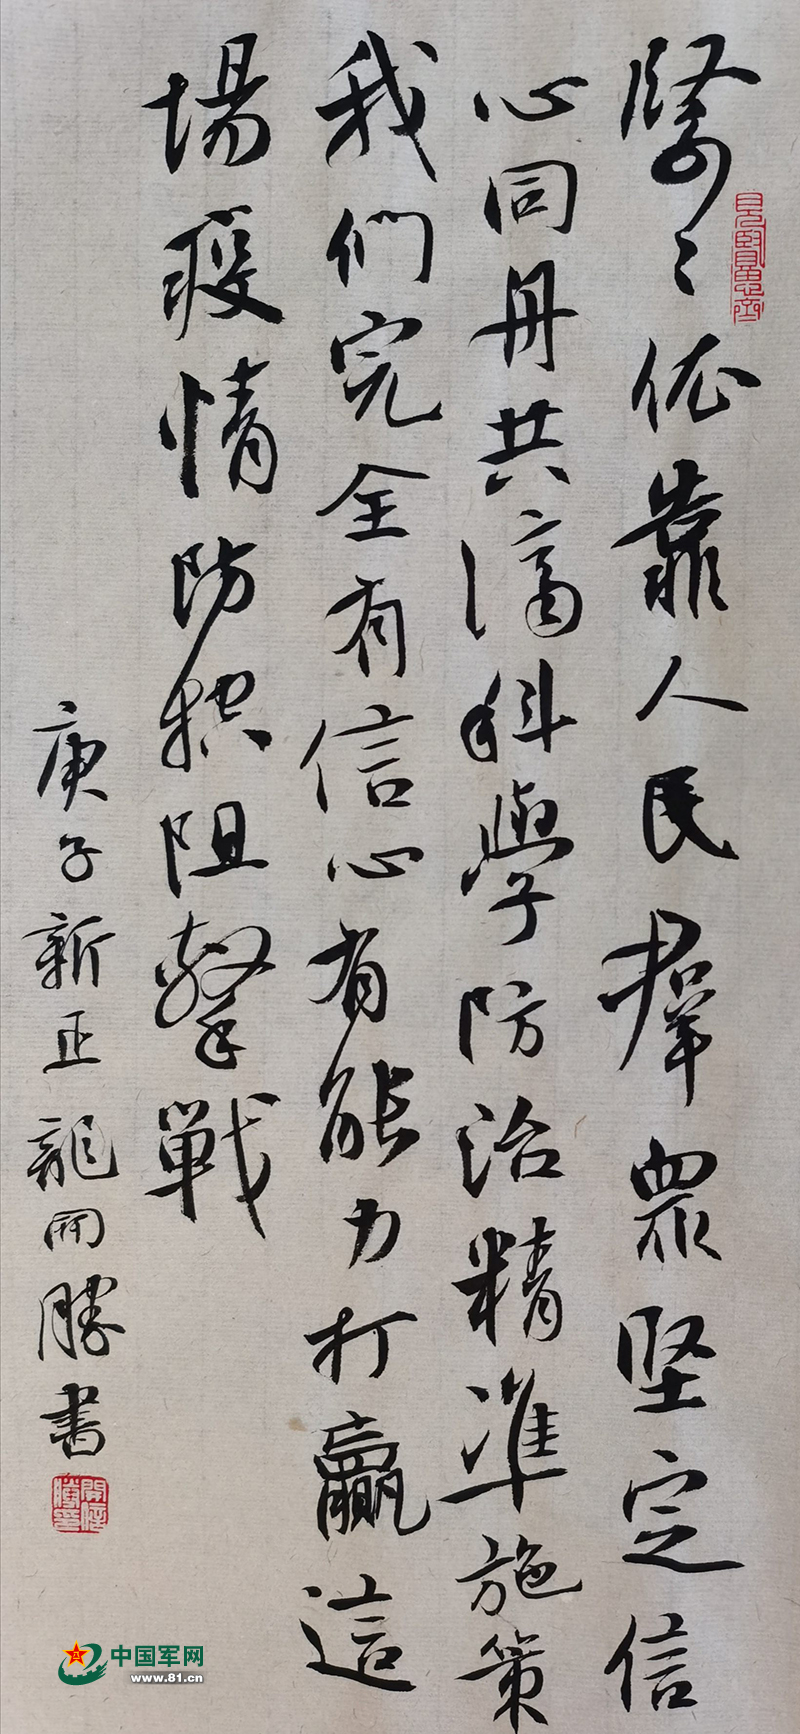 緊〻依靠人民羣眾堅定信
心同舟共濟科學防治精準施策
我們完全有信心有能力打贏這
場疫情防控阻擊戰
庚子新正龍開勝書
見賢思齊
開勝之鉨
中国军网
www.81.cn